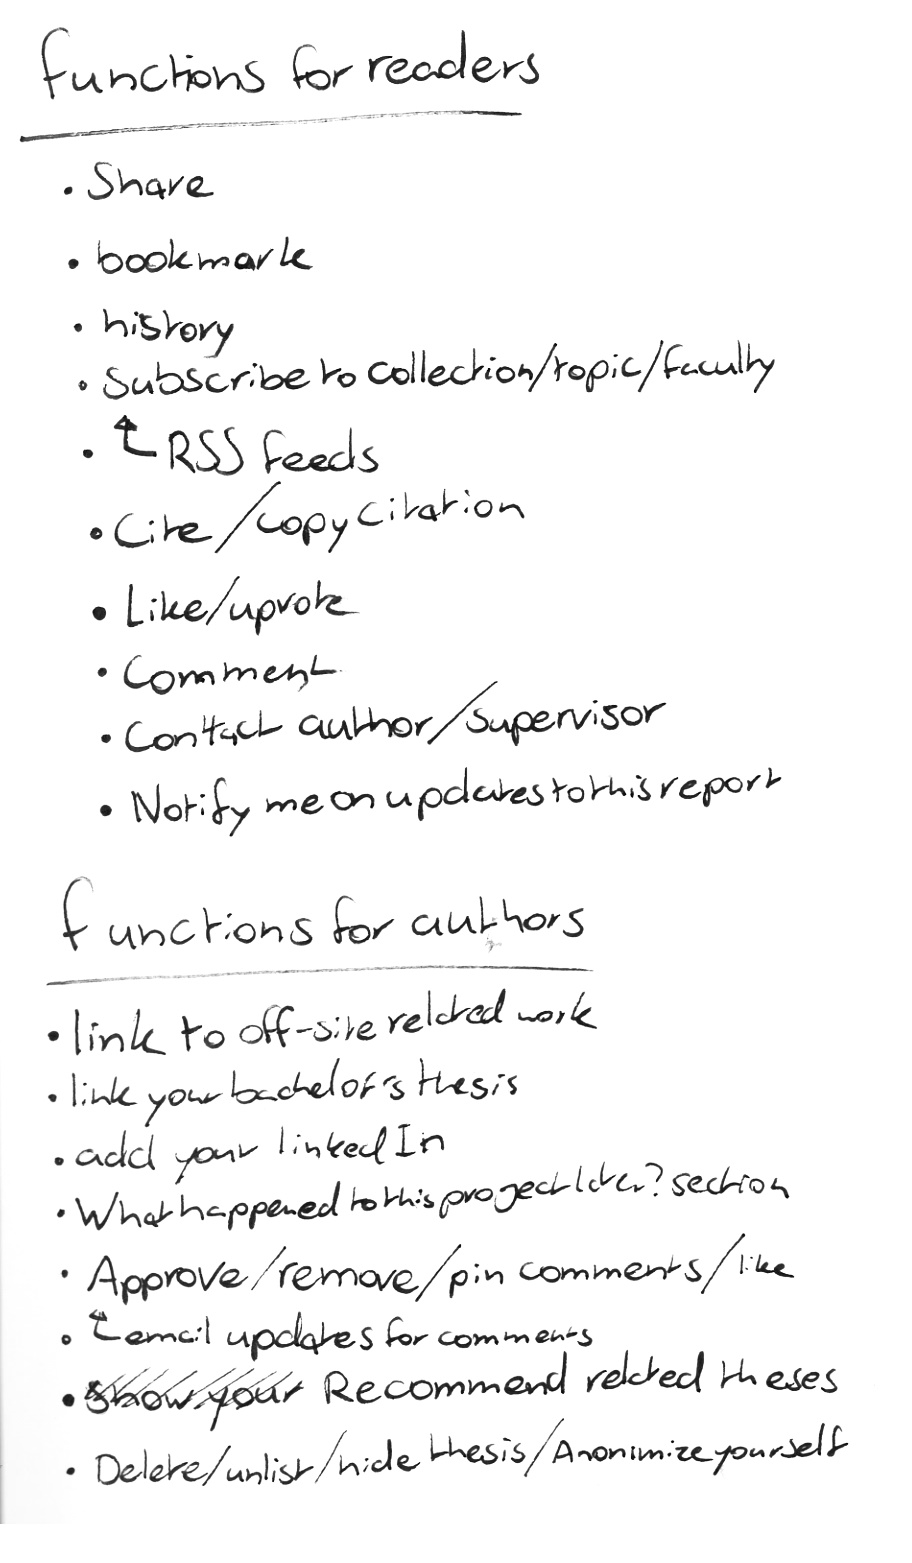 functions for readers
• Share
• bookmark
• history
• Subscribe to collection/topic/faculty
• ↑ RSS feeds
• Cite/copy citation
• Like/upvote
• Comment
• Contact author/supervisor
• Notify me on updates to this report
functions for authors
• link to off-site related work
• link your bachelor's thesis
• add your linkedIn
• What happened to this project later? section
• Approve/remove/pin comments/like
• ↑ email updates for comments
• Show your Recommend related theses
• Delete/unlist/hide thesis/Anonimize yourself